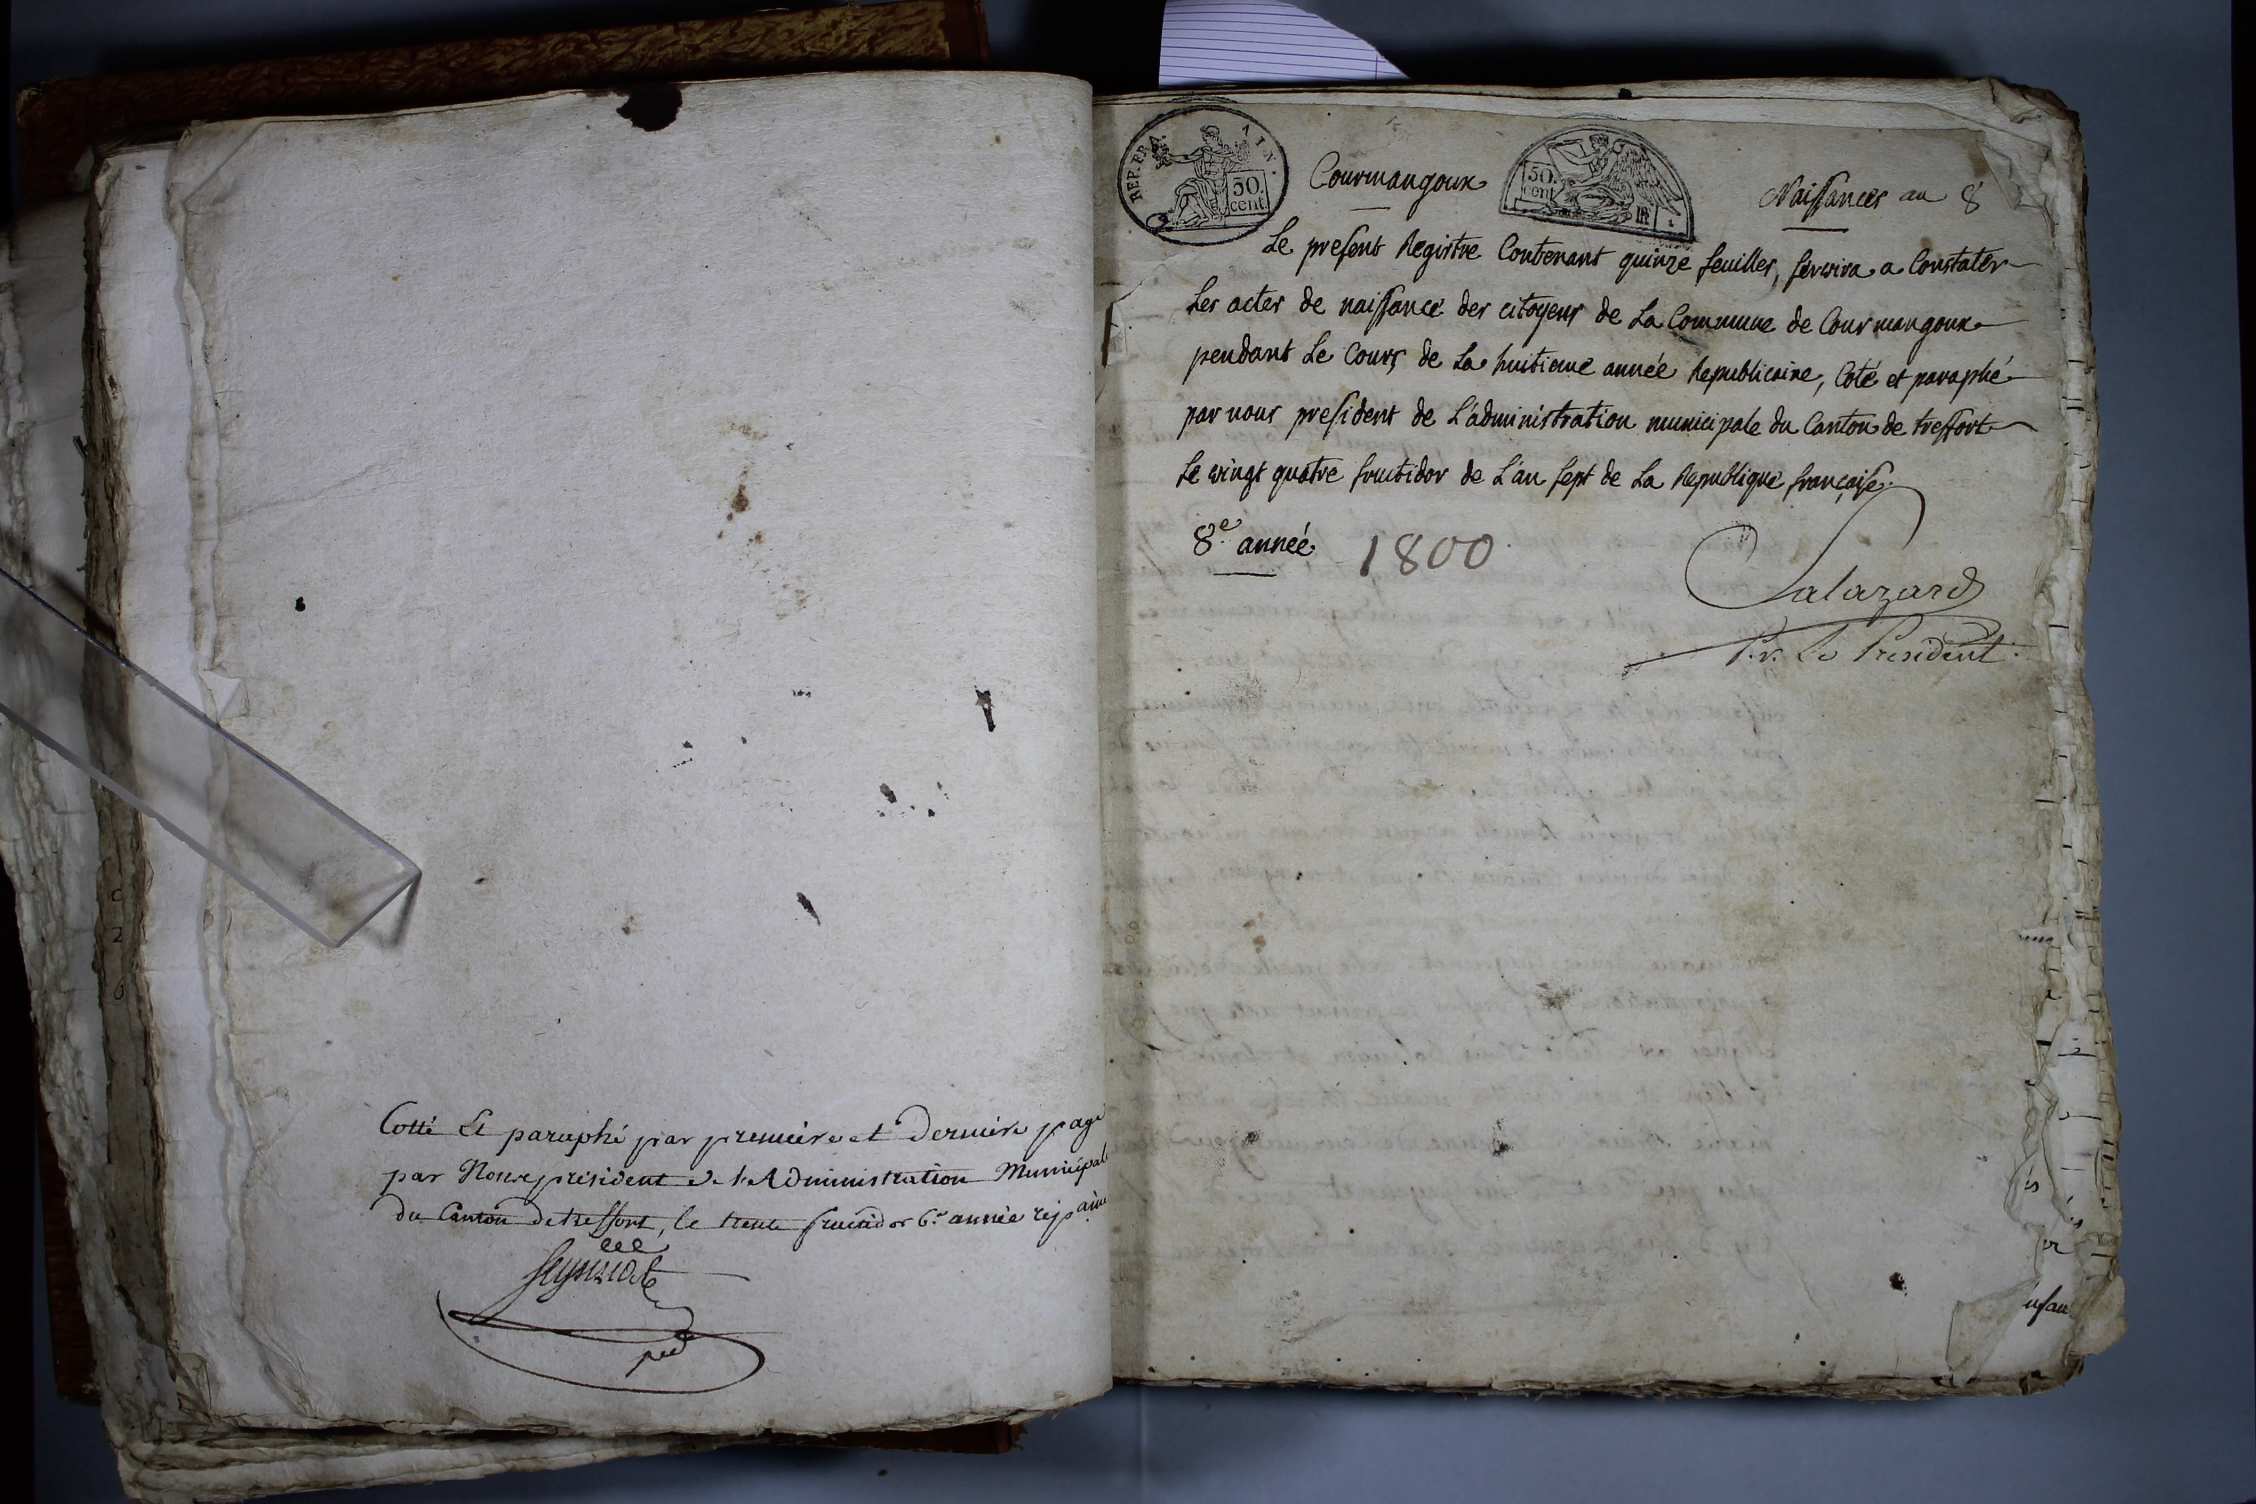 Cotté Et paraphé par premiére et Derniére page
par Nous president de l'Administration Municipale
du Canton de treffort, le trente fructidor 6.e année rep.aine
REP. FRA. AIN.
50. cent.
Courmangoux
50. cent.
Naissances an 8
Le present Registre Contenant quinze feuilles, servira a Constater
Les actes de naissance des citoyens de La Commune de Courmangoux
pendant Le Cours de La huitieme année Republicaine, Coté et paraphé
par nous president de L'administration municipale du Canton de treffort
Le vingt quatre fructidor de L'an sept de La Republique française.
8.e année 1800
Salazard
P.r. Le President